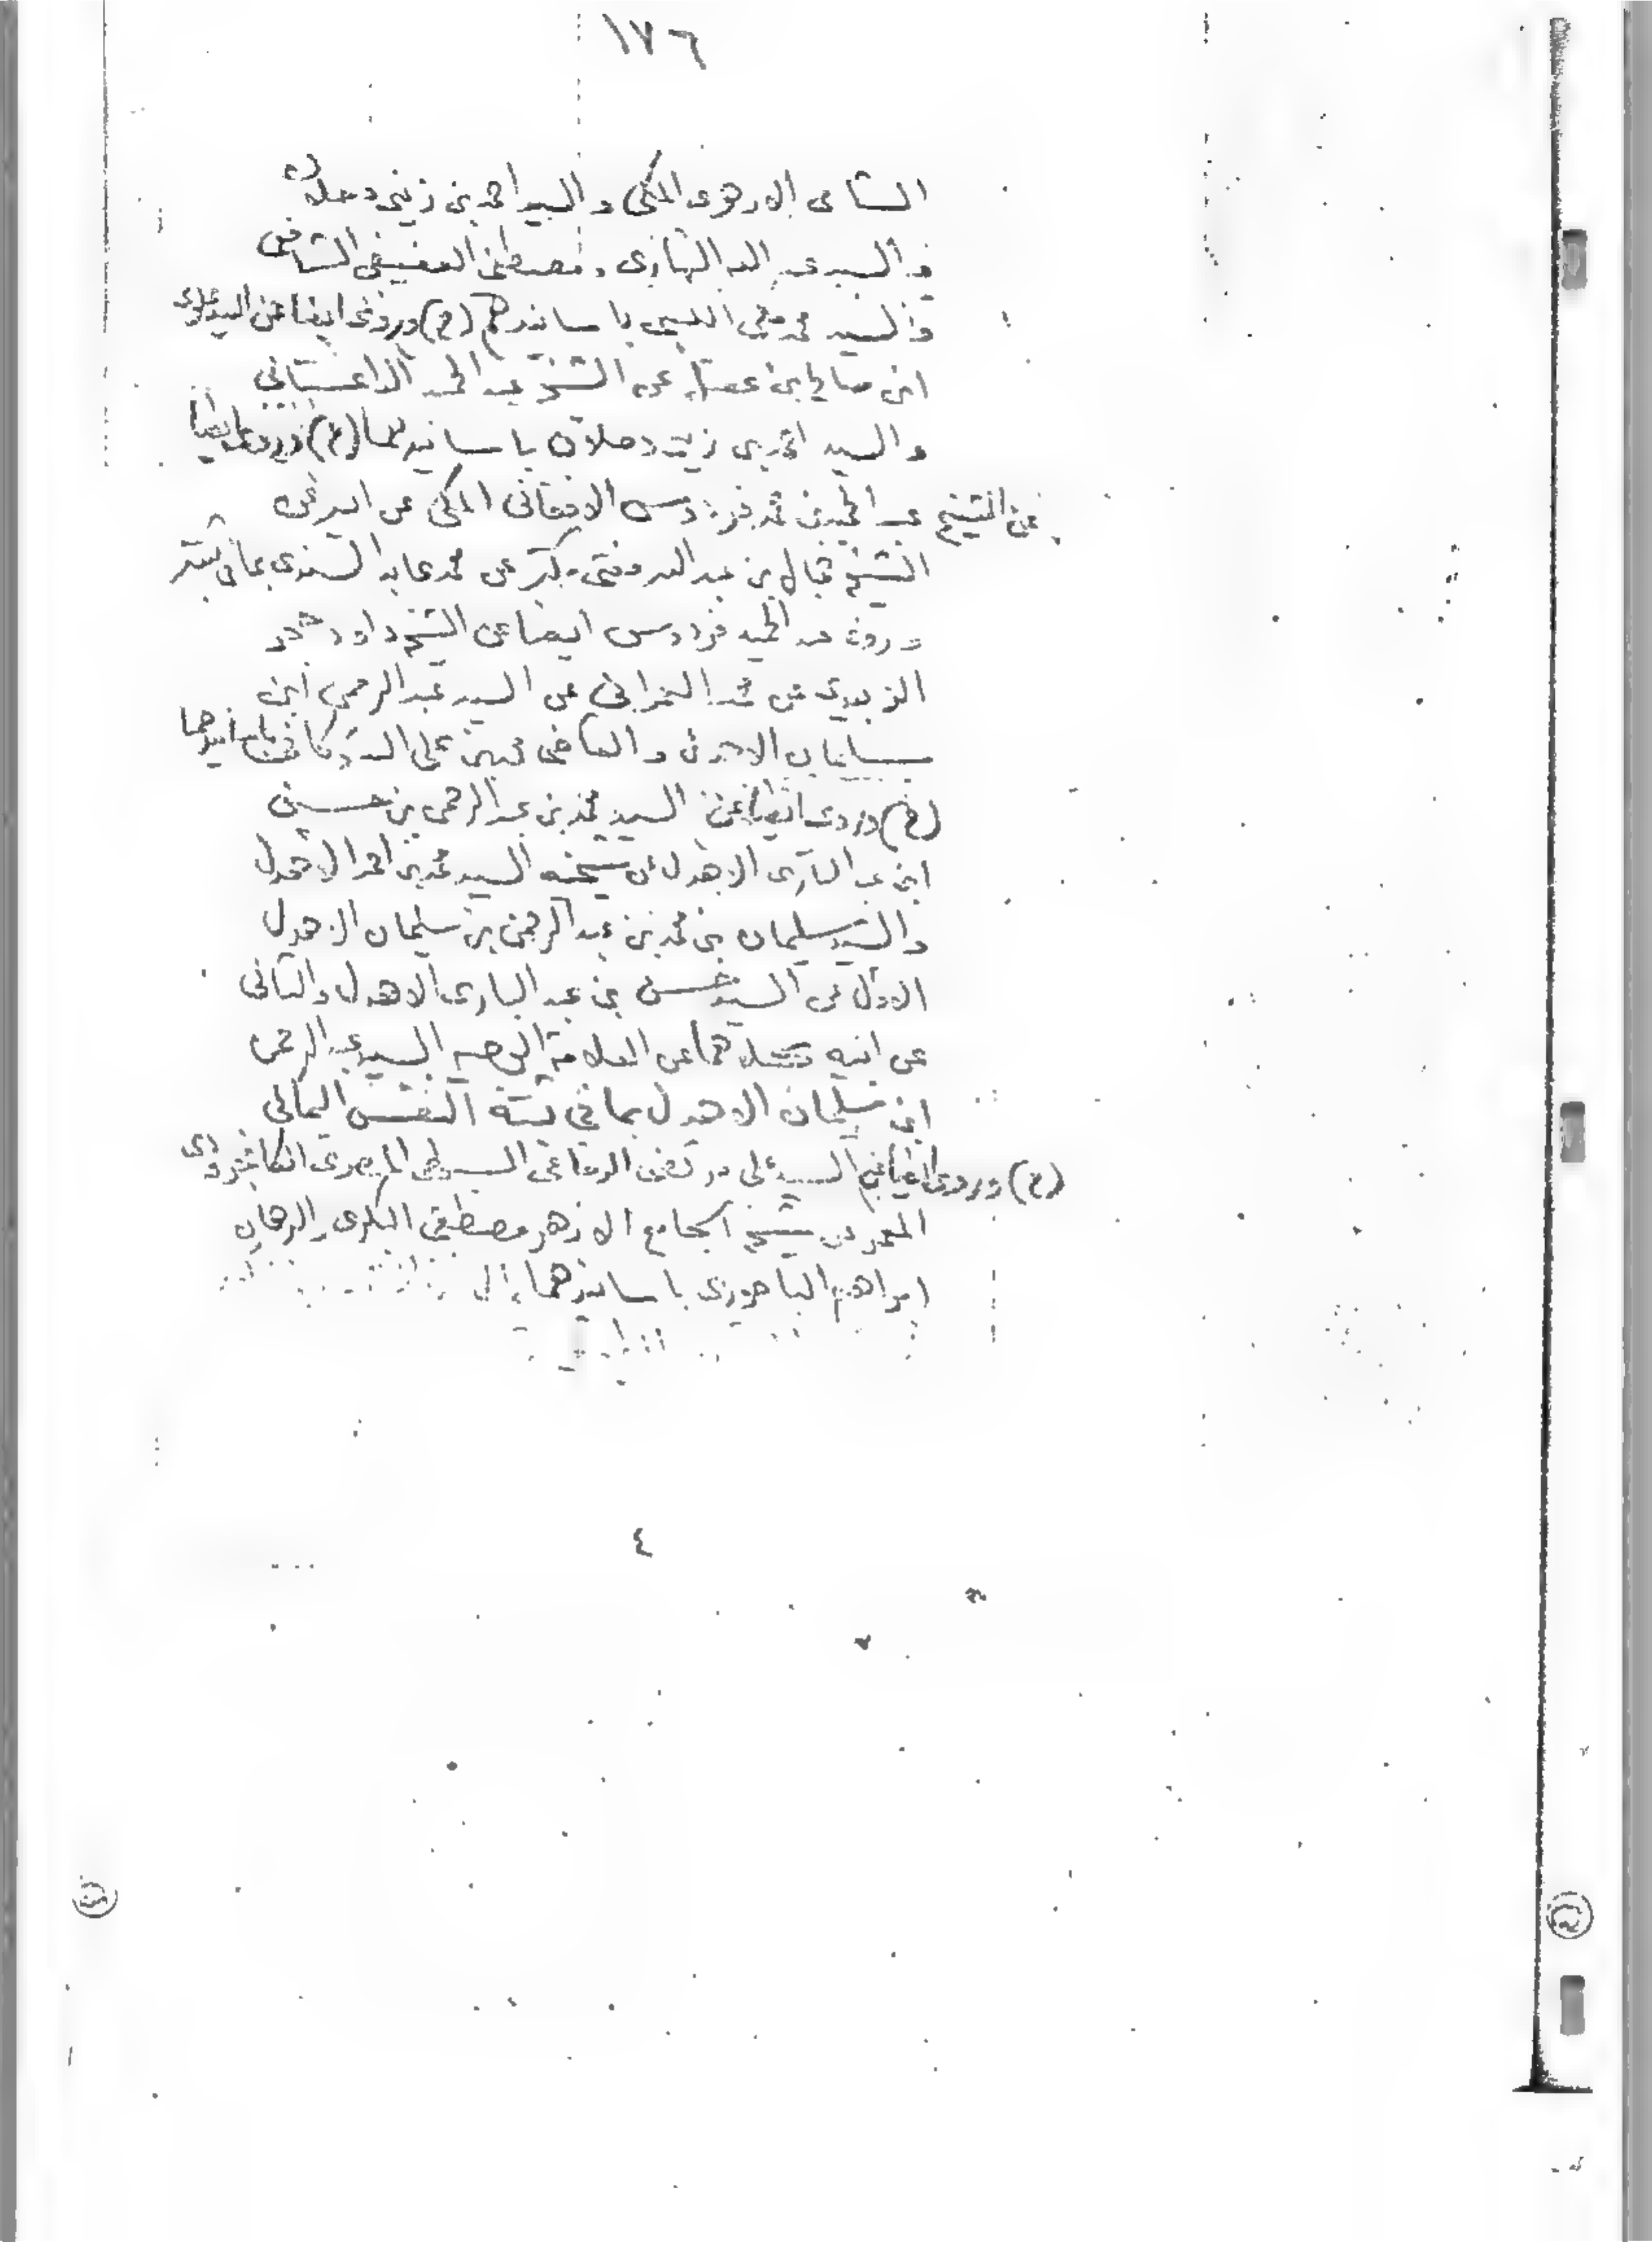 ١٧٦
الشامى الازهرى المكى والسيد احمد بن زينى دحلان
والسيد عبد الله النهارى ومصطفى العفيفى الشافعى
والسيد محمد تقى باسانيدهم (ح) وروى ايضا عن السيد علوى
ابن صالح بن عقيل عن الشيخ عبد الحميد الداغستانى
والسيد احمد بن زينى دحلان باسانيدهما (ح) وروى ايضا
عن الشيخ عبد الحميد بن محمد فردوس الافغانى المكى عن
الشيخ جمال بن عبد الله مفتى مكة عن محمد عابد السندى بما فى ثبته
وروى عبد الحميد فردوس ايضا عن الشيخ داود حجر
الزبيدى عن محمد العمرانى عن السيد عبد الرحمن ابن
سليمان الاهدل والقاضى محمد بن على الشوكانى باسانيدهما
(ح) وروى ايضا عن السيد محمد بن عبد الرحمن بن حسن
ابن عبد البارى الاهدل عن شيخه السيد محمد بن احمد الاهدل
والسيد سليمان بن محمد بن عبد الرحمن بن سليمان الاهدل
الاول عن السيد حسن بن عبد البارى الاهدل والثانى
عن ابيه كلاهما عن العلامة الوجيه السيد عبد الرحمن
ابن سليمان الاهدل بما فى ثبته النفس اليمانى
(ح) وروى ايضا عن السيد على مرتضى الرفاعى المصرى
المعمر عن شيخ الجامع الازهر مصطفى البكرى والبرهان
ابراهيم الباجورى باسانيدهما
٤